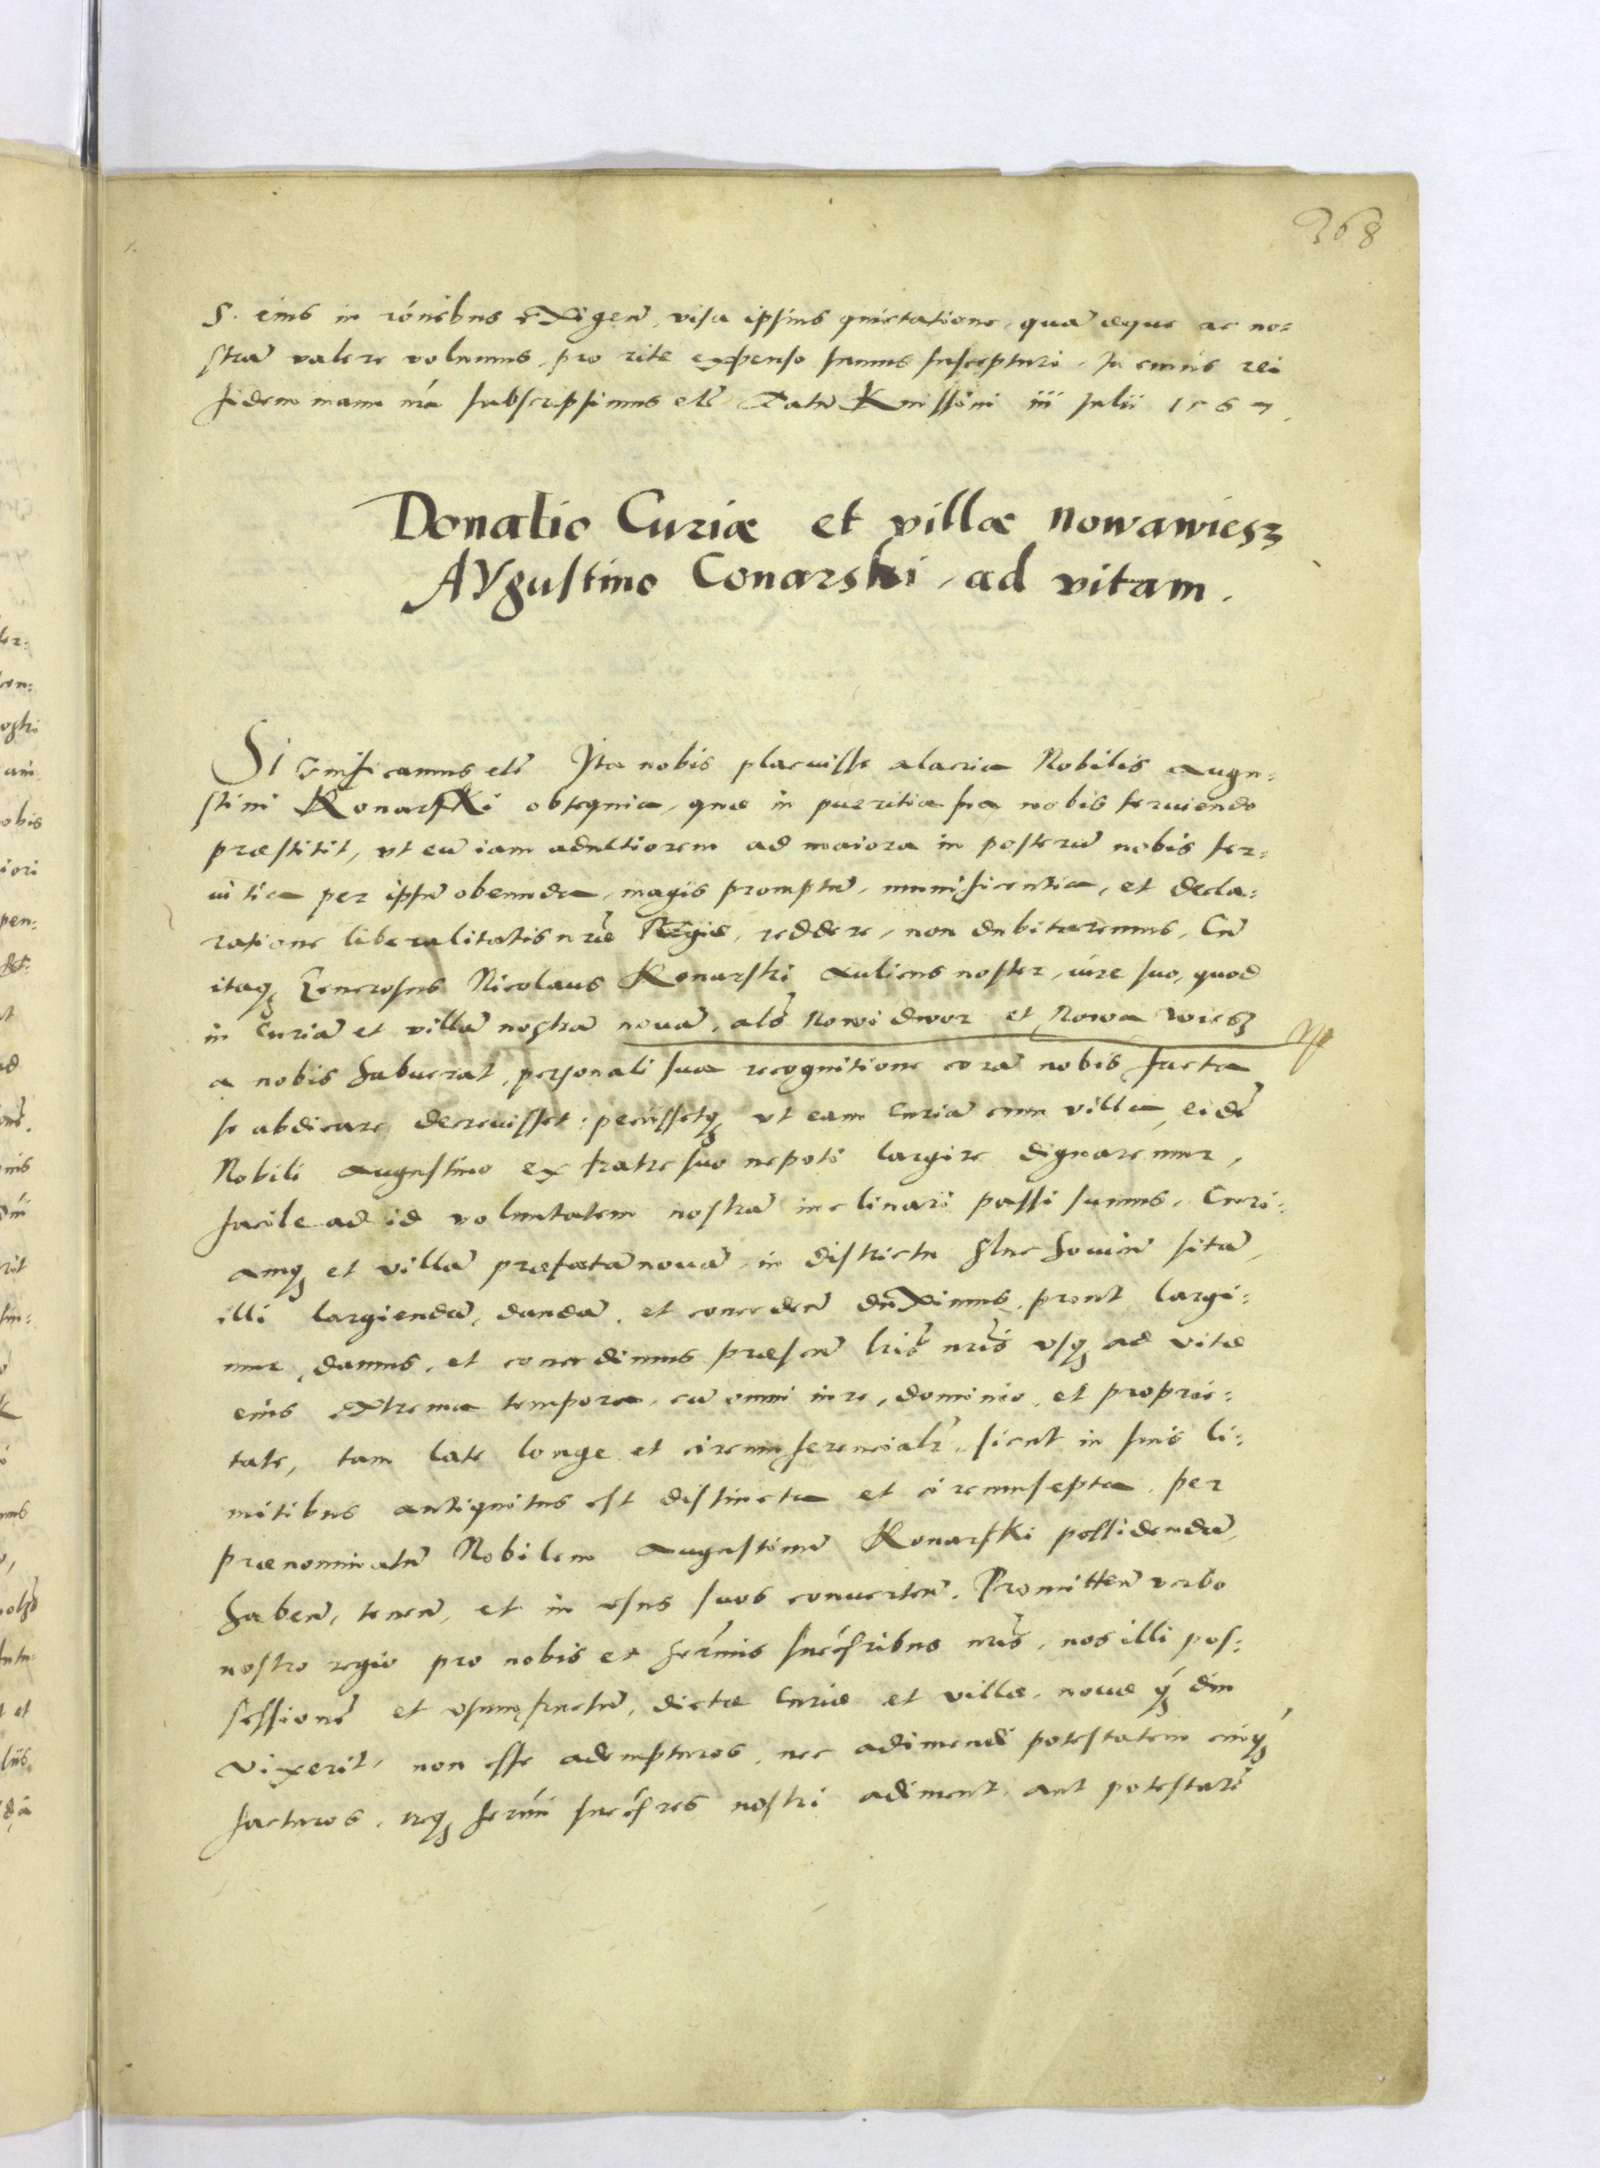 368
S. eius in rónibus exigen̄, visa ipsius quietatione, quā æque ac no:
strā valere volumus, pro rite expenso sumus suscepturi. In cuius rei
fidem manu nrá subscripsimus etc̄ Datū Knissini iii Julii 1567.
Donatio Curiæ et villæ nowawiesz
AVgustino Conarski, ad vitam.
Significamus etc̄ Ita nobis placuisse alacria Nobilis Augu:
stini Konarski obsequia, quæ in pueritia sua nobis seruiendo
præstitit, vt eū iam adultiorem ad maiora in posterū nobis ser:
uitia per ipsū obeunda, magis promptū, munificentia, et decla:
ratione liberalitatis nræ Regiæ, reddere, non dubitaremus, Cū
itaq₃ Generosus Nicolaus Konarski Aulicus noster, iure suo, quod
in Curiā et villā nostrā nouā, als Nowi dwor et Nowa Wiesz
a nobis habuerat, personali sua recognitione corā nobis facta
se abdicare decreuisset: petiissetq₃ vt eam Curiā cum villa, eidē
Nobili Augustino ex fratre suo nepoti largire dignaremur,
facile ad id voluntatem nostrā inclinari passi sumus. Curi:
amq₃ et villā præfatā nouā, in districtu Sluchouien̄ sitā,
illi largiendā, dandā, et conceden̄ duximus, prout largi:
mur, damus, et concedimus præsen̄ lris nris vsq₃ ad vitæ
eius extrema tempora, cū omni iure, dominio, et proprie:
tate, tam late longe et circumferencialr, sicut in suis li:
mitibus antiquitus est distincta et circumsepta, per
prænominatū Nobilem Augustinū Konarski possidendā,
haben̄, tenen̄, et in vsus suos conuerten̄. Promitten̄ verbo
nostro regio pro nobis et serm̄is succ̄ribus nris, nos illi pos:
sessionē et vsumfructū, dictæ Curiæ et villæ, nouæ q₃ diu
vixerit, non esse adempturos, nec adimendi potestatem cuiq₃
facturos, neq₃ sermi succ̄res nostri adiment, aut potestatē